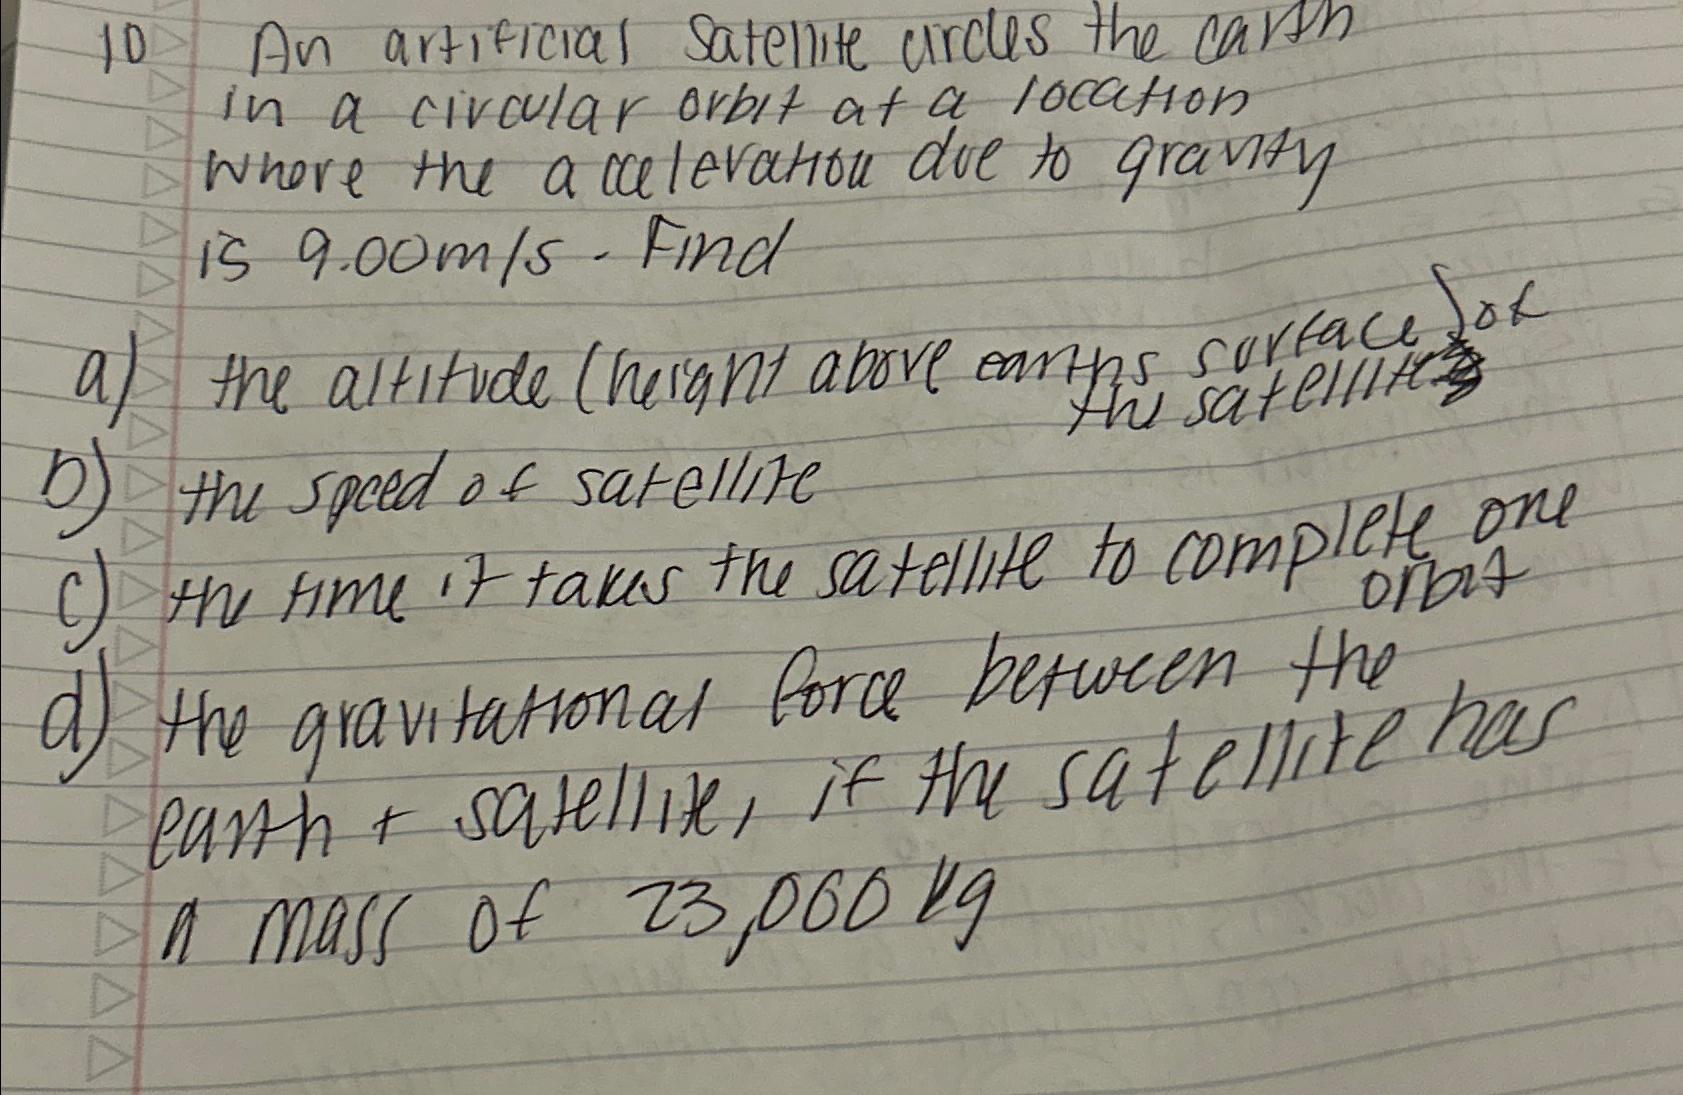 10 An artificial satellite circles the earth
in a circular orbit at a location
where the acceleration due to gravity
is 9.00m/s - Find
a) the altitude (height above earths surface) of
the satellite
b) the speed of satellite
c) the time it takes the satellite to complete one
orbit
d) the gravitational force between the
earth + satellite, if the satellite has
a mass of 23,000 kg